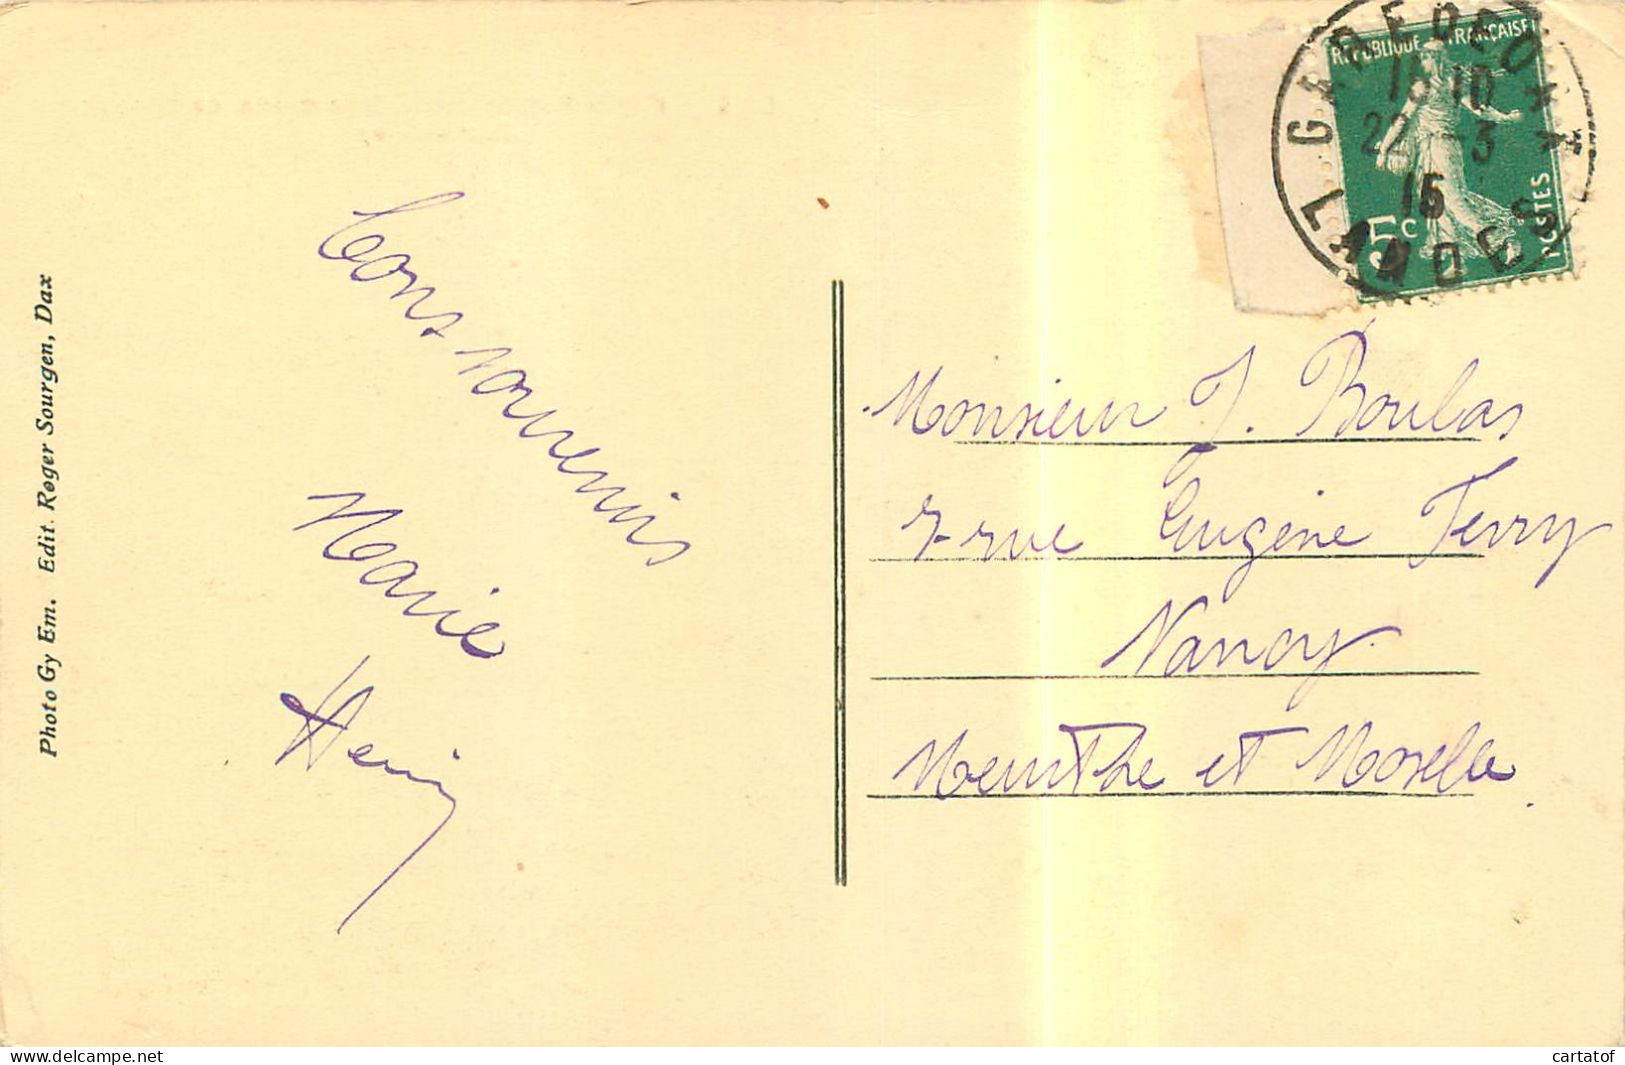 Photo Gy Em. Edit. Roger Sourgen, Dax
Bons souvenirs
Marie
Henri
RÉPUBLIQUE FRANÇAISE
POSTES
5c
GARE DE DAX
15 10
22 - 3
15
LANDES
Monsieur J. Boulas
7 rue Eugène Ferry
Nancy
Meurthe et Moselle.
www.delcampe.net
cartatof